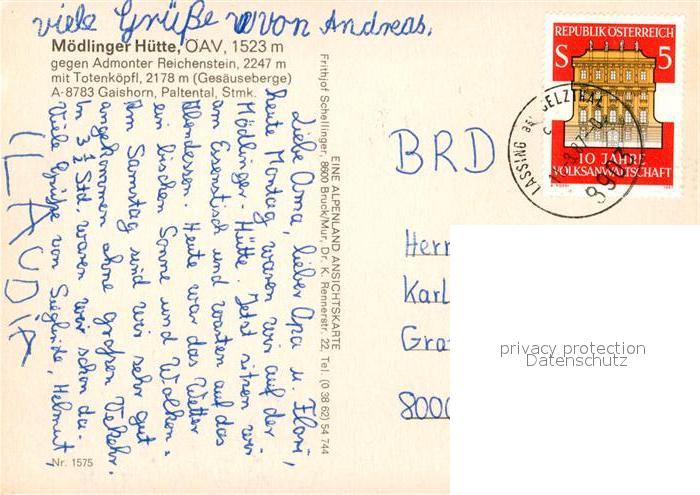 viele Grüße von Andreas.
Mödlinger Hütte, ÖAV, 1523 m
gegen Admonter Reichenstein, 2247 m
mit Totenköpfl, 2178 m (Gesäuseberge)
A-8783 Gaishorn, Paltental, Stmk.
Liebe Oma, lieber Opa u.
heute Montag waren wir auf der
Mödlinger-Hütte. Jetzt sitzen wir
am Essenstisch und warten auf das
Abendessen. Heute war das Wetter
ein bischen Sonne und Wolken.
Am Samstag sind wir sehr gut
angekommen ohne großen Verkehr.
In 3 ½ Std. waren wir schon da.
Viele Grüße von Sieglinde, Helmut,
CLAUDIA
Nr. 1575
EINE ALPENLAND ANSICHTSKARTE
Frithjof Schellinger, 8600 Bruck/Mur, Dr. K. Rennerstr. 22, Tel. (0 38 62) 54 744
REPUBLIK ÖSTERREICH
S 5
10 JAHRE
VOLKSANWALTSCHAFT
LASSING BEI SELZTHAL
8903
BRD
Herr
Karl
8000
privacy protection
Datenschutz